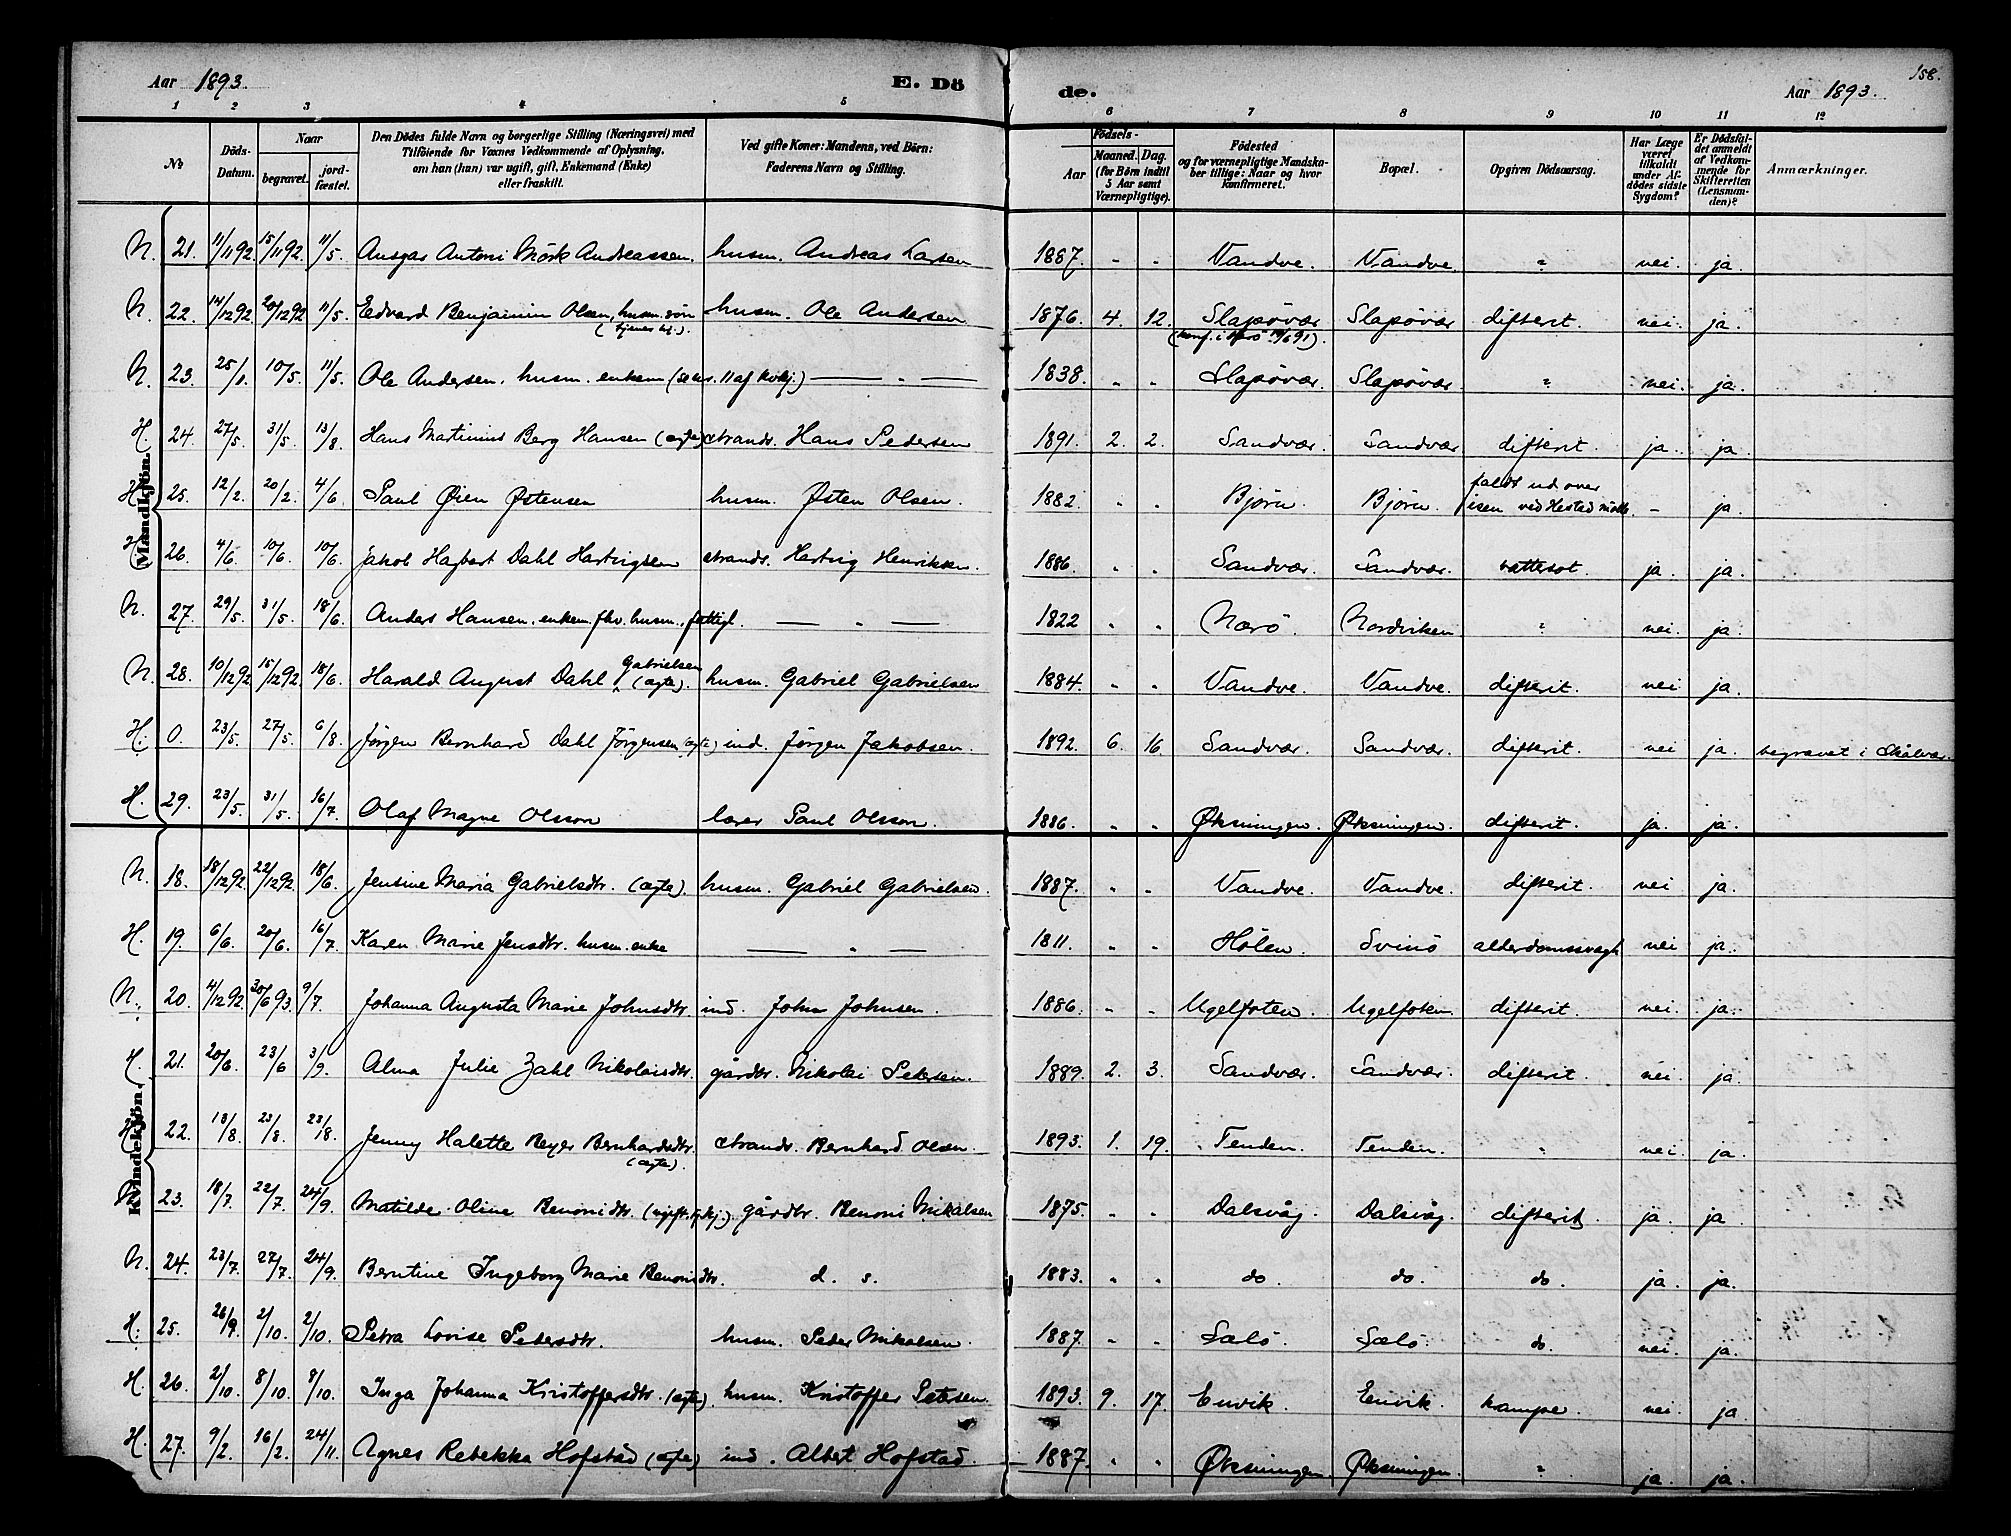 158.
Aar 1893. E. Dö de. Aar 1893.
1 2 3 4 5 6 7 8 9 10 11 12
No Döds-Datum. Naar begravet. jord-fæstet. Den Dödes fulde Navn og borgerlige Stilling (Næringsvei) med Tilföiende for Voxnes Vedkommende af Oplysning, om han (hun) var ugift, gift, Enkemand (Enke) eller fraskilt. Ved gifte Koner: Mandens, ved Börn: Faderens Navn og Stilling. Födsels- Aar Maaned. Dag. (for Börn indtil 5 Aar samt Værnepligtige). Födested og for værnepligtige Mandska-ber tillige: Naar og hvor konfirmeret. Bopæl. Opgiven Dödsaarsag. Har Læge været tilkaldt under Af-dödes sidste Sygdom? Er Dödsfal-det anmeldt af Vedkom-mende for Skifteretten (Lensman-den)? Anmærkninger.
Mandkjön.
N. 21. 11/11 92. 15/11 92. 11/5. Ansgar Antoni Mörk Andreassen. husm. Andreas Larsen 1887. " " Vandve. Vandve. " nei. ja.
N. 22. 14/12 92. 20/12 92 11/5. Edvard Benjamin Olsen, husm. sön husm. Ole Andersen 1876. 4. 12. Slapövær Slapövær difterit. nei. ja.
N. 23. 25/1. 10/5. 11/5. Ole Andersen. husm. enkem — " — 1838. " " Slapövær. Slapövær " nei. ja.
H. 24. 27/5. 31/5. 13/8. Hans Martinius Berg Hansen (ægte) strands. Hans Pedersen 1891. 2. 2. Sandvær. Sandvær difterit. ja. ja
H. 25. 12/2. 20/2. 4/6 Paul Øien Østensen husm. Østen Olsen. 1882. " " Bjørn. Bjørn. faldt ud over isen ved Hestad – ja.
H. 26. 4/6. 10/6. 10/6. Jakob Hagbart Dahl Hartvigsen strands. Hartvig Henriksen. 1886. " " Sandvær. Sandvær. vattersot. ja. ja.
N. 27. 29/5. 31/5. 18/6. Anders Hansen. enkem. fhv. husm., fattigl. — " — 1822 " " Nærö. Nordviken " nei. ja.
N. 28. 10/12 92 15/12 92. 18/6. Harald August Dahl Gabrielsen (ægte). husm. Gabriel Gabrielsen 1884. " " Vandve. Vandve. difterit. nei ja.
H. 0. 23/5. 27/5. 6/8. Jörgen Bernhard Dahl Jörgensen (ægte) ind. Jörgen Jakobsen. 1892. 6. 16 Sandvær. Sandvær. difterit. nei ja. begravet i Skålvær.
H. 29. 23/5. 31/5. 16/7. Olaf Magne Olsson lærer Paul Olsson. 1886. " " Øksningen. Øksningen. difterit. ja. ja.
Kvindekjön.
N. 18. 18/12 92. 22/12 92. 18/6. Jensine Maria Gabrielsdtr. (ægte). husm. Gabriel Gabrielsen. 1887. " " Vandve. Vandve. difterit. nei ja.
H. 19. 6/6. 20/6. 16/7. Karen Marie Jensdtr. husm. enke — " — 1811. " " Hølen. Svinö alderdomssvagh nei ja.
N. 20. 4/12 92. 30/6 93. 9/7. Johanna Augusta Marie Johnsdtr ind. John Johnsen. 1886. " " Ugelfoten. Ugelfoten difterit. nei. ja.
H. 21. 20/6. 23/6 3/9. Alma Julie Zahl Nikolaisdtr. gårdbr. Nikolai Petersen. 1889. 2. 3. Sandvær. Sandvær. difterit. nei. ja.
H. 22. 13/8. 23/8. 23/8. Jenny Halette Beyer Bernhardsdtr. (ægte). strands. Bernhard Olsen. 1893. 1. 19. Tenden. Tenden. " nei. ja.
N. 23. 18/7. 22/7. 24/9. Matilde Oline Benonidtr. gårdbr. Benoni Mikalsen 1875. " " Dalsvåg. Dalsvåg. difterit. ja. ja
N. 24. 23/7. 27/7. 24/9. Berntine Ingeborg Marie Benonidtr. d. s. 1883. " " do. do. do. ja. ja.
H. 25. 26/9. 2/10. 2/10. Petra Lovise Pedersdtr. husm. Peder Mikalsen 1887. " " Sælö. Sælö. do. nei. ja.
H. 26. 2/10. 8/10. 8/10. Inga Johanna Kristoffersdtr. (ægte). husm. Kristoffer Petersen. 1893. 9. 17. Envik. Envik. krampe. nei. ja
H. 27. 9/2. 16/2. 24/11. Agnes Rebekka Hofstad (ægte) ind. Albert Hofstad. 1887. " " Øksningen. Øksningen. " ja. ja.